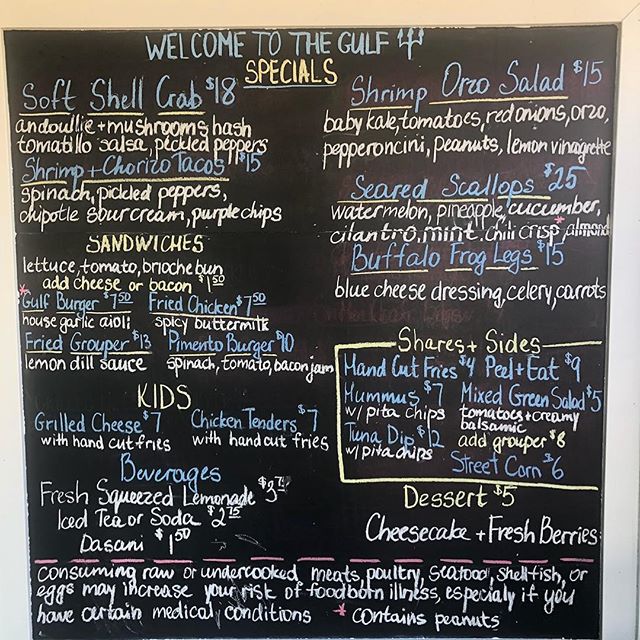 WELCOME TO THE GULF
SPECIALS
Soft Shell Crab $18
andoullie + mushrooms hash
tomatillo salsa, pickled peppers
Shrimp + Chorizo Tacos $15
spinach, pickled peppers,
chipotle sour cream, purple chips
Shrimp Orzo Salad $15
baby kale, tomatoes, red onions, orzo,
pepperoncini, peanuts, lemon vinagrette
Seared Scallops $25
watermelon, pineapple, cucumber,
cilantro, mint, chili crisp, *almond
Buffalo Frog Legs $15
blue cheese dressing, celery, carrots
SANDWICHES
lettuce, tomato, brioche bun
add cheese or bacon $1.50
*Gulf Burger $7.50 Fried Chicken $7.50
house garlic aioli spicy buttermilk
Fried Grouper $13 Pimento Burger $10
lemon dill sauce spinach, tomato, bacon jam
KIDS
Grilled Cheese $7 Chicken Tenders $7
with hand cut fries with hand cut fries
Beverages
Fresh Squeezed Lemonade $3.75
Iced Tea or Soda $2.75
Dasani $1.50
Shares + Sides
Hand Cut Fries $4 Peel + Eat $9
Hummus $7 Mixed Green Salad $5
w/ pita chips tomatoes + creamy
balsamic
Tuna Dip $12 add grouper $8
w/ pita chips
Street Corn $6
Dessert $5
Cheesecake + Fresh Berries
consuming raw or undercooked meats, poultry, seafood, shellfish, or
eggs may increase your risk of foodborn illness, especialy if you
have certain medical conditions * contains peanuts